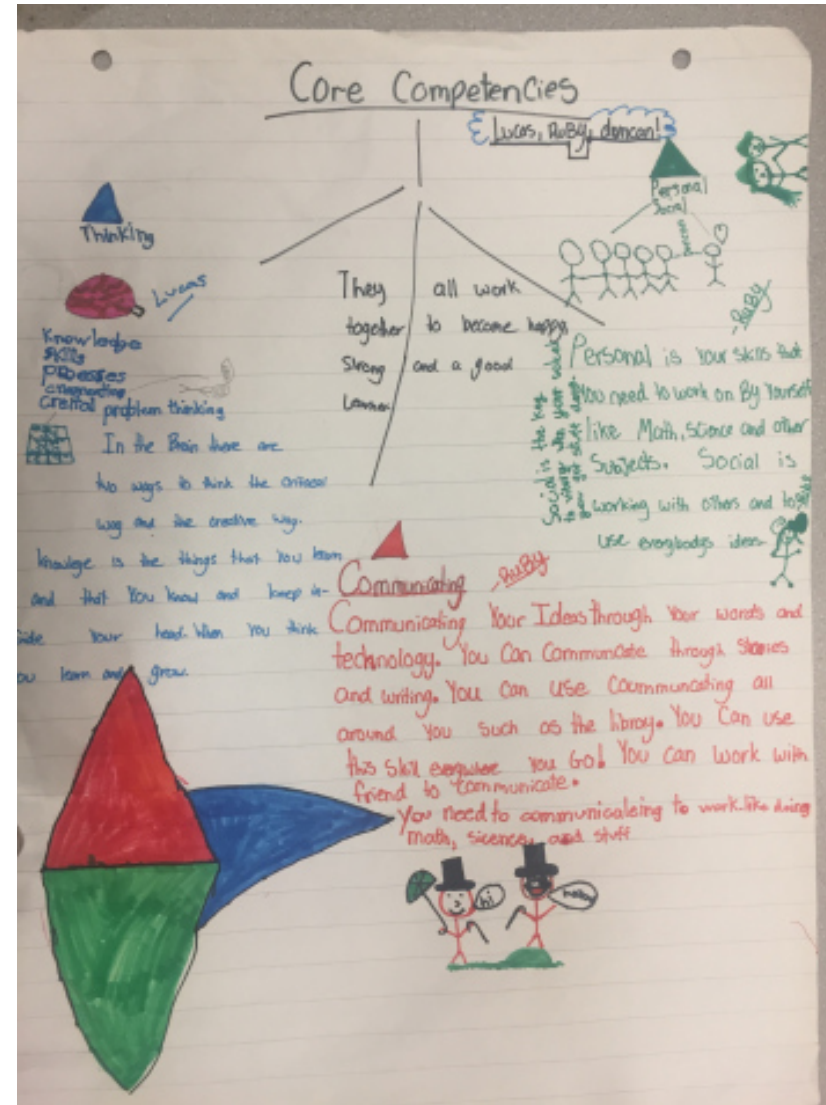 Core Competencies
Lucas, RuBy, duncan!
Thinking
Lucas
Knowledge
skills
processes
problem thinking
In the Brain there are
two ways to think the critical
way and the creative way.
knowlege is the things that You learn
and that You know and keep in-
side Your head. When You think
you learn and grow.
They all work
together to become happy,
Strong and a good
Learner
Personal
Social
RuBy
Personal is Your skills that
You need to work on By Yourself
like Math, Science and other
Subjects. Social is
working with others and to
use everybodys ideas
Social is the key
Communicating
RuBy
Communicating Your Ideas through Your words and
technology. You Can Communcate through Stories
and writing. You can use Coummuncating all
around You such as the libray. You Can use
this skill everywhere You Go! You can work with
friend to communicate.
You need to communicateing to work like doing
math, sicence, and stuff
hi